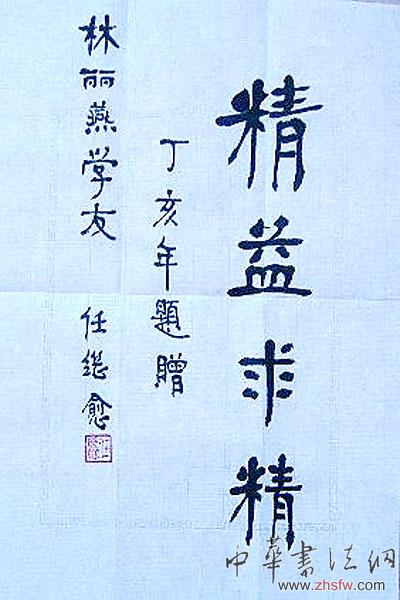 精益求精
丁亥年題贈
林丽燕学友
任继愈
中華書法網
www.zhsfw.com